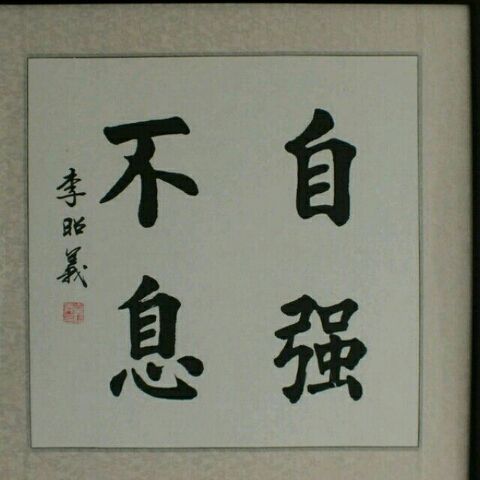 自强
不息
李昭義